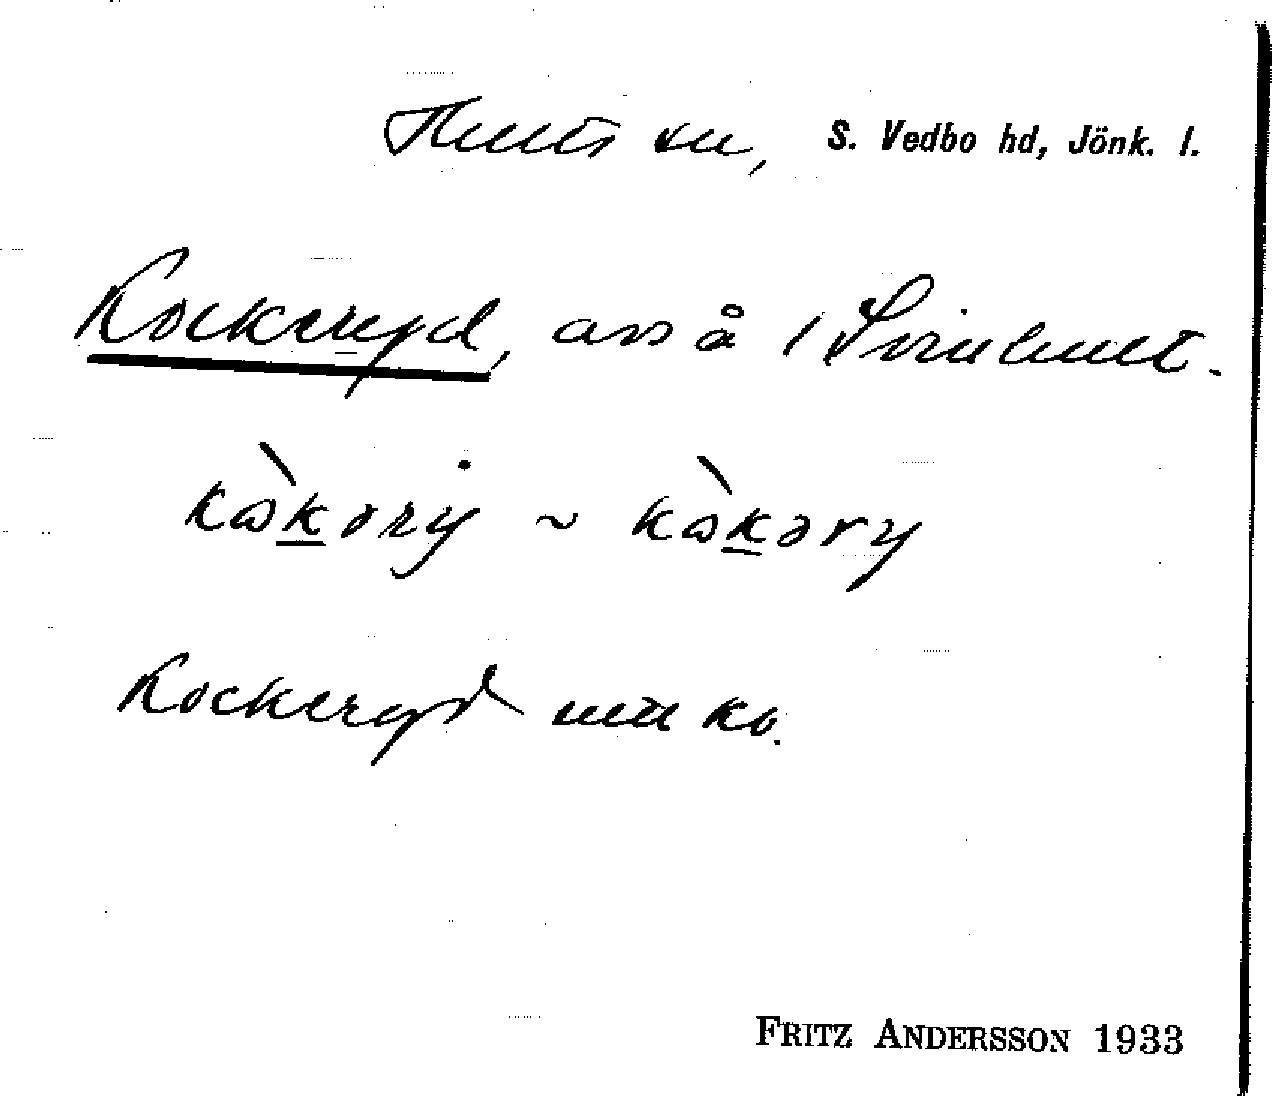 Hults sn, S. Vedbo hd, Jönk. l.
Kockeryd, avs å / Svinhult.
kòkəry ~ kòkəry
Kockeryd
FRITZ ANDERSSON 1933